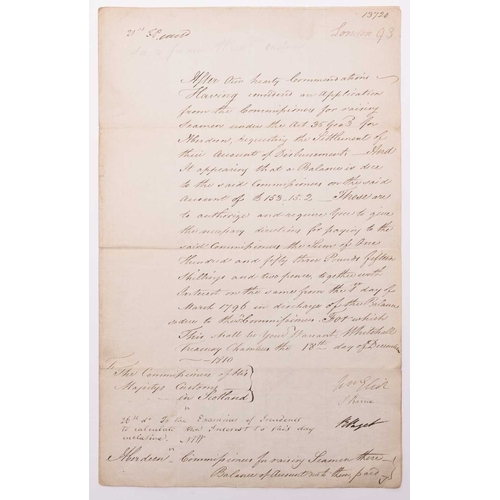 13720
21st
London 93
After Our hearty Commendations
Having considered an Application
from the Commissioners for raising
Seamen under the Act 35 Geo 3d for
Aberdeen, requesting the Settlement of
their Account of Disbursements And
It appearing that a Balance is due
to the said Commissioners on the said
Account of £153.15.2 These are
to authorize and require You to give
the necessary directions for paying to the
said Commissioners the Sum of One
Hundred and fifty three Pounds fifteen
Shillings and two pence, together with
Interest on the same from the day of
March 1796 in discharge of the Balance
so due to the Commissioners For which
This shall be Your Warrant, Whitehall
Treasury Chambers the 18th day of December
1810
To
The Commissioners of His
Majestys Customs
in Scotland
26th To the Examiner of
to calculate the Interest to this day
inclusive.
Aberdeen Commissioners for raising Seamen there
Balance of Account to them paid